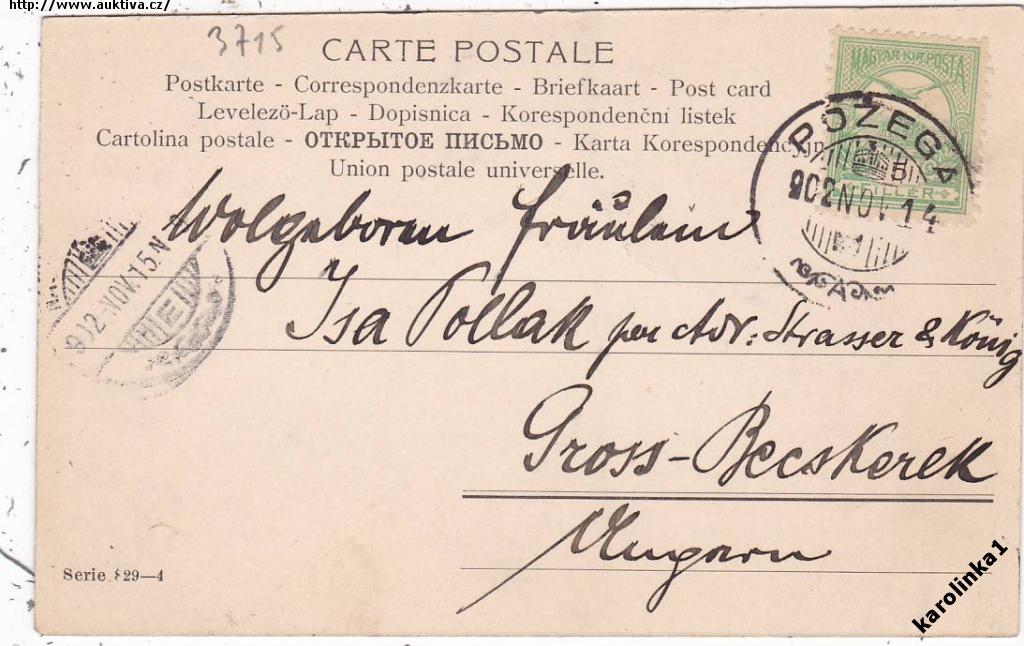 http://www.auktiva.cz/
3715
CARTE POSTALE
Postkarte - Correspondenzkarte - Briefkaart - Post card
Levelezö-Lap - Dopisnica - Korespondenční listek
Cartolina postale - ОТКРЫТОЕ ПИСЬМО - Karta Korespondencyjna
Union postale universelle.
MAGYAR KIR. POSTA
FILLÉR
POZEGA
902 NOV 14
902-NOV. 15. N
Wolgeboren Fräulein
Isa Pollak per Adr: Strasser & König
Gross-Becskerek
Ungarn
Serie 829—4
karolinka1